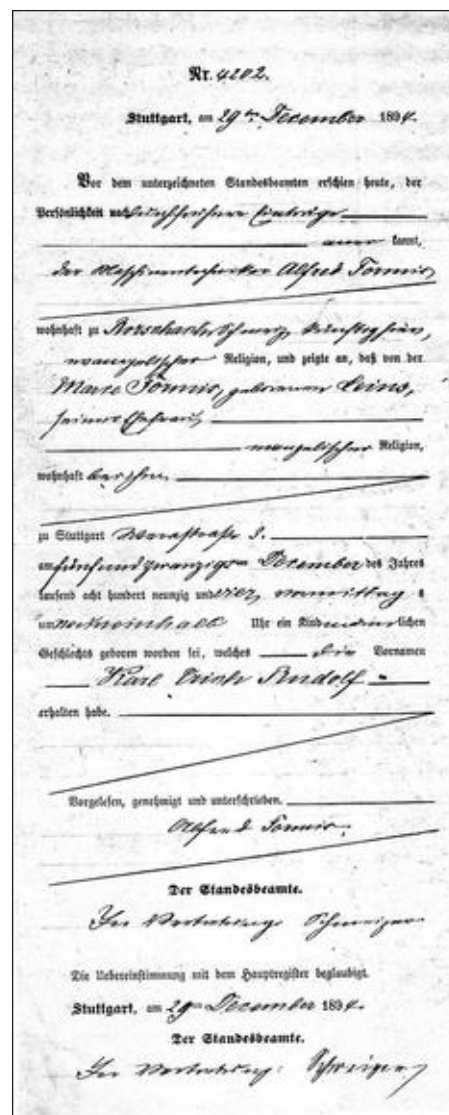 Nr. 4202.
Stuttgart, am 29ten December 1894.
Vor dem unterzeichneten Standesbeamten erschien heute, der
Persönlichkeit nach
kannt,
der Maschinentechniker Alfred Tönnis,
wohnhaft zu Rorschach,
evangelischer Religion, und zeigte an, daß von der
Marie Tönnis, geborenen Leins,
seiner Ehefrau,
evangelischer Religion,
wohnhaft bei ihm
zu Stuttgart Werastraße 3.
am fünfundzwanzigsten December des Jahres
tausend acht hundert neunzig und vier, vormittags
um Uhr ein Kind männlichen
Geschlechts geboren worden sei, welches die Vornamen
Karl Erich Rudolf
erhalten habe.
Vorgelesen, genehmigt und unterschrieben.
Alfred Tönnis.
Der Standesbeamte.
In Vertretung:
Die Uebereinstimmung mit dem Hauptregister beglaubigt.
Stuttgart, am 29ten December 1894.
Der Standesbeamte.
In Vertretung: